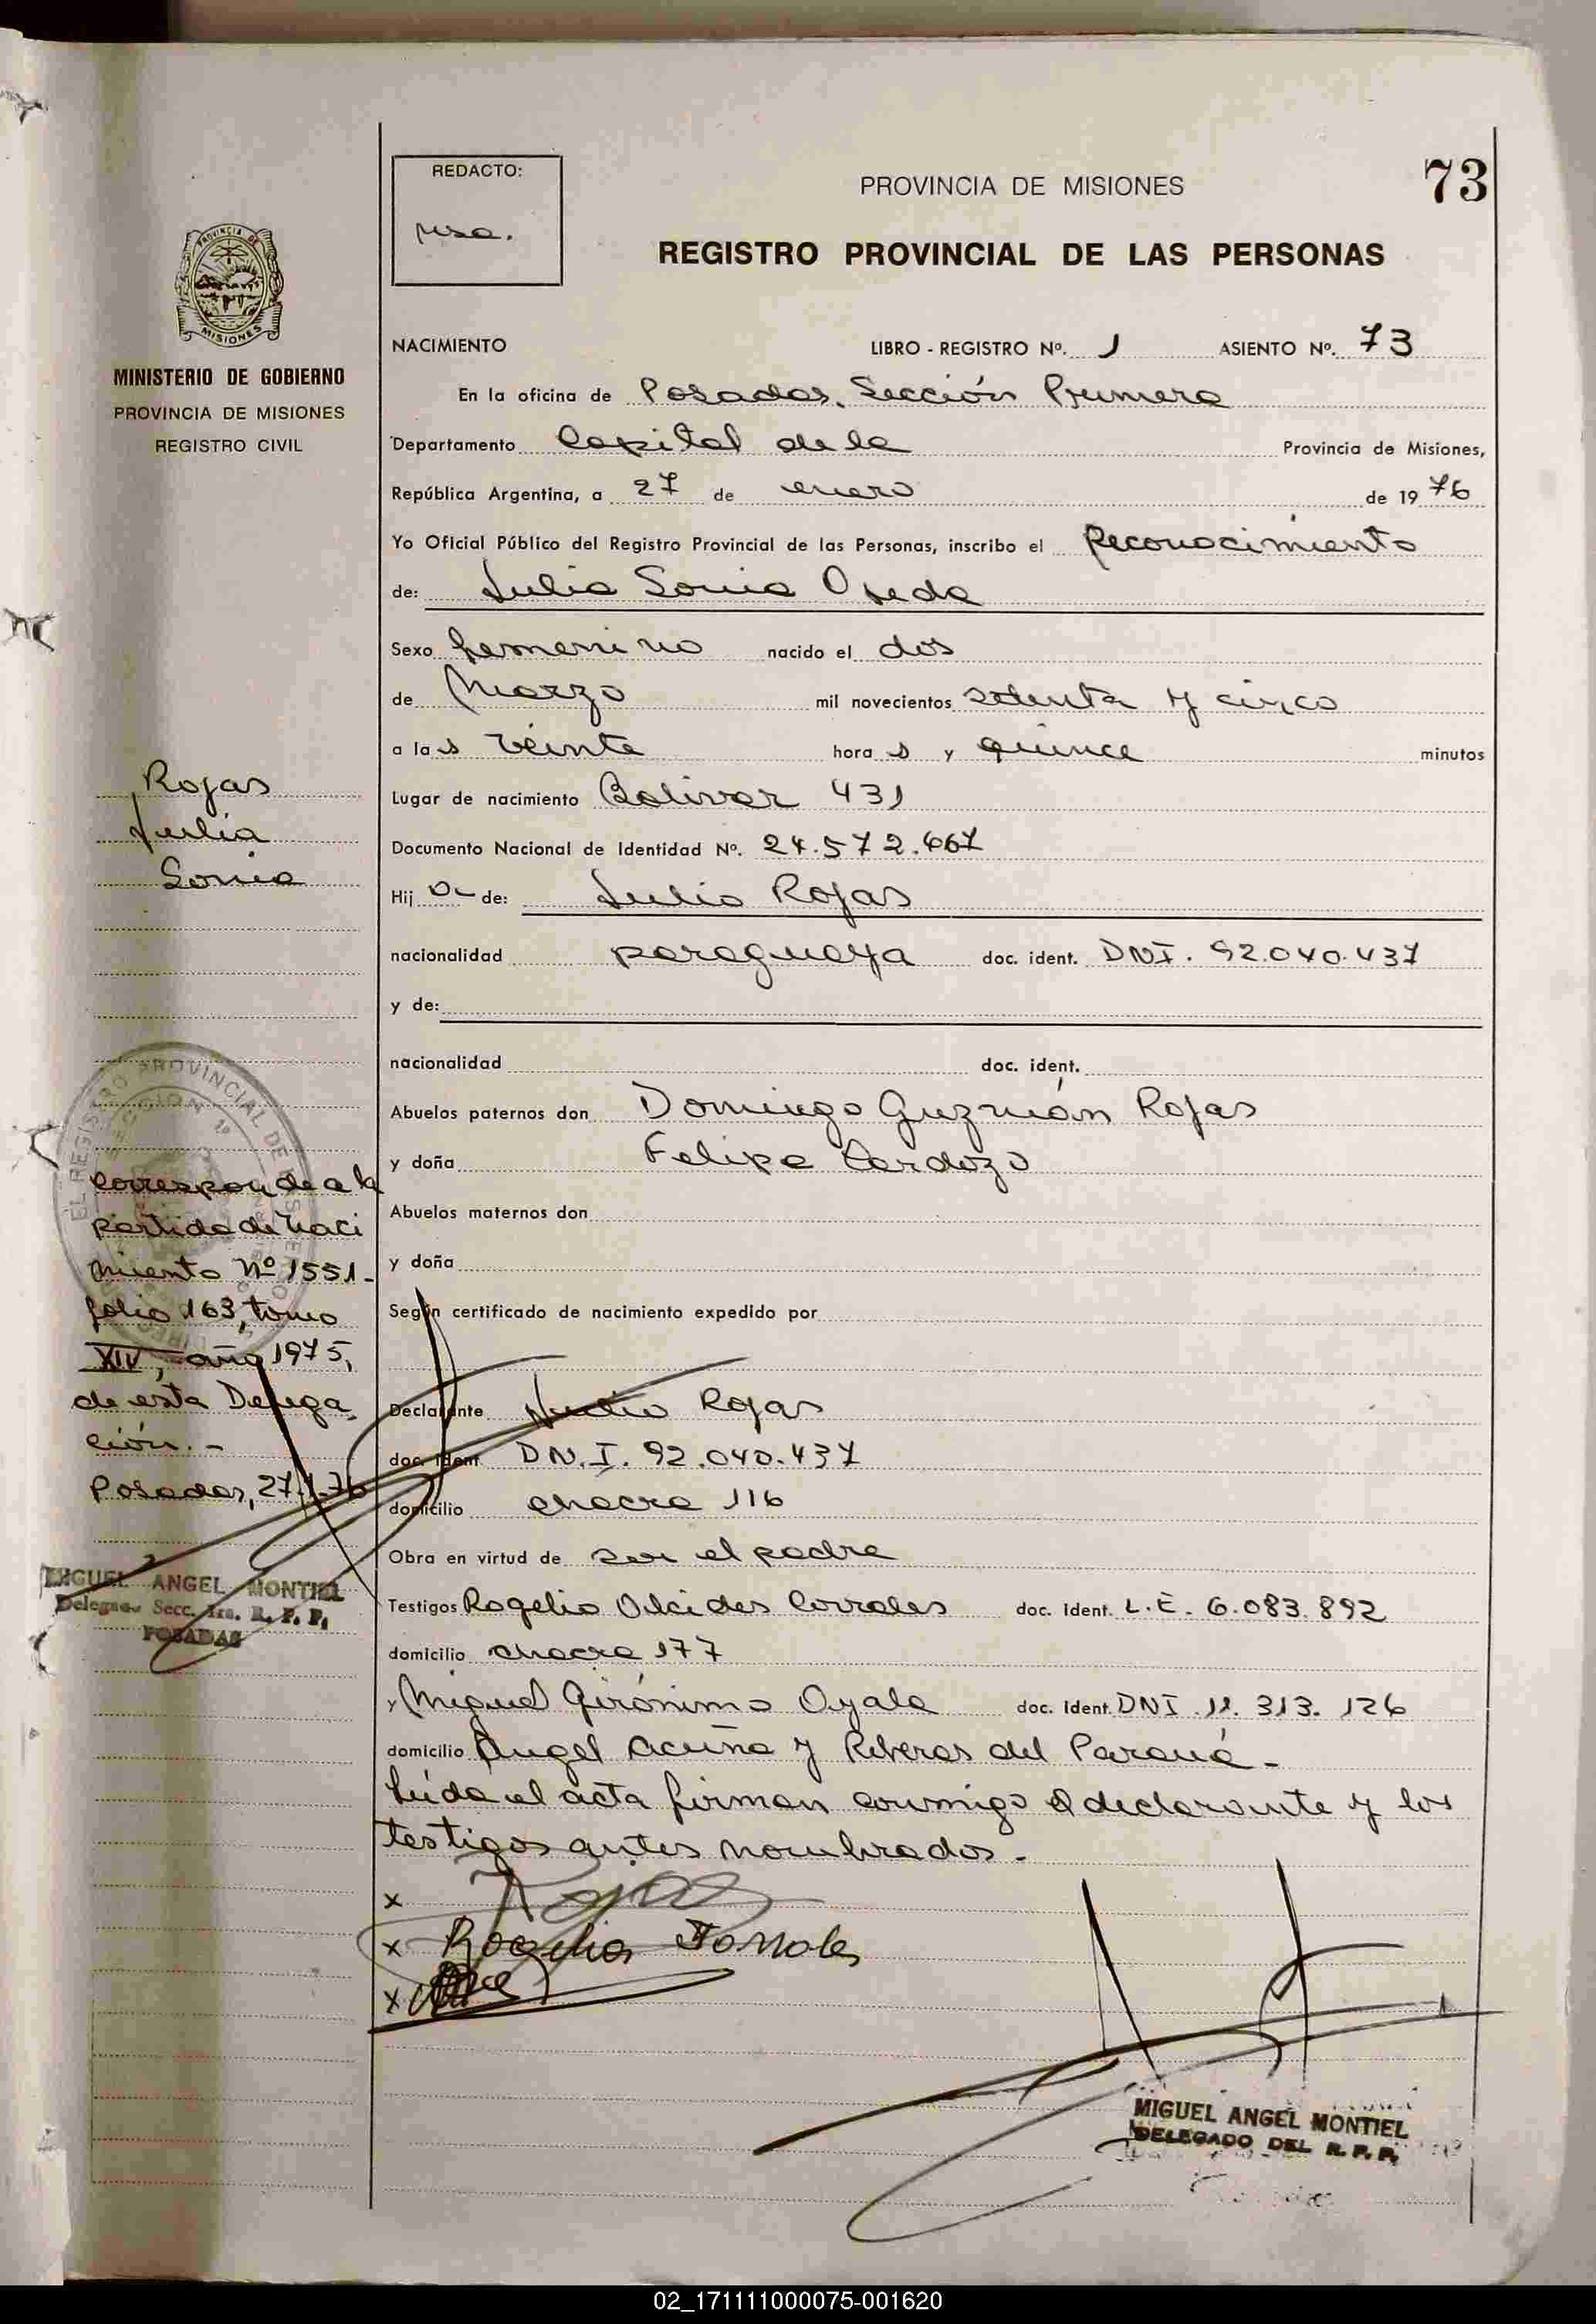 73
REDACTO:
PROVINCIA DE MISIONES
REGISTRO PROVINCIAL DE LAS PERSONAS
PROVINCIA DE
MISIONES
MINISTERIO DE GOBIERNO
PROVINCIA DE MISIONES
REGISTRO CIVIL
NACIMIENTO LIBRO - REGISTRO Nº. 1 ASIENTO Nº. 73
En la oficina de Posadas, Sección Primera
Departamento Capital de la Provincia de Misiones,
República Argentina, a 27 de enero de 1976
Yo Oficial Público del Registro Provincial de las Personas, inscribo el Reconocimiento
de: Julia Sonia Ojeda
Sexo femenino nacido el dos
de Marzo mil novecientos setenta y cinco
a las veinte horas y quince minutos
Lugar de nacimiento Bolivar 431
Documento Nacional de Identidad Nº. 24.572.667
Hija de: Julio Rojas
nacionalidad paraguaya doc. ident. DNI. 92.040.437
y de:
nacionalidad doc. ident.
Abuelos paternos don Domingo Guzmán Rojas
y doña Felipa Cardozo
Abuelos maternos don
y doña
Según certificado de nacimiento expedido por
Declarante Julio Rojas
doc. ident. DN.I. 92.040.437
domicilio chacra 116
Obra en virtud de ser el padre
Testigos Rogelio Alcides Corrales doc. ident. L.E. 6.083.892
domicilio chacra 177
y Miguel Girónimo Ayala doc. ident. DNI. 11.313.126
domicilio Angel Acuña y Riberas del Paraná -
Leída el acta firman conmigo el declarante y los
testigos antes nombrados. -
x Rojas
x Rogelio
x
MIGUEL ANGEL MONTIEL
DELEGADO DEL R. P. P.
Rojas
Julia
Sonia
corresponde a la
partida de naci
miento Nº 1551-
folio 163, tomo
XIV, año 1975,
de esta Delega
ción. -
Posadas, 27.1.76
MIGUEL ANGEL MONTIEL
Delegado Secc. 1ra. R. P. P.
POSADAS
02_171111000075-001620